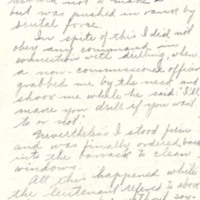 not to make
but was pushed in rank by
brutal force.
In spite of this I did not
obey any command in
connection with drilling, when
a non-commissioned officer
grabbed me by the neck and
shook me while he said: "I'll
make you drill if you want
to or not."
Nevertheless I stood firm
and was finally ordered back
into the barrack to clean
windows.
All this happened while
the lieutenant refered to above
without